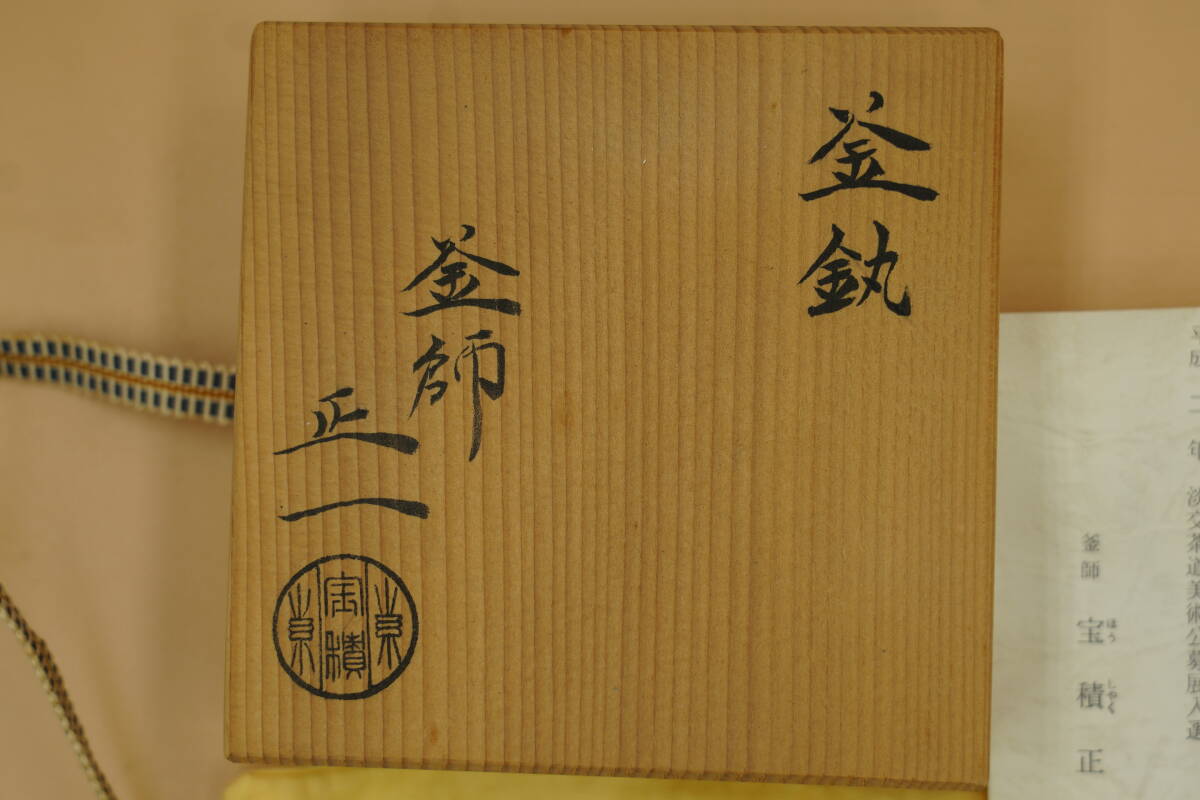 釜釻
釜師
正一
東
宝積
京
二年 淡交茶道美術公募展入選
釜師 宝積 正
ほう しゃく